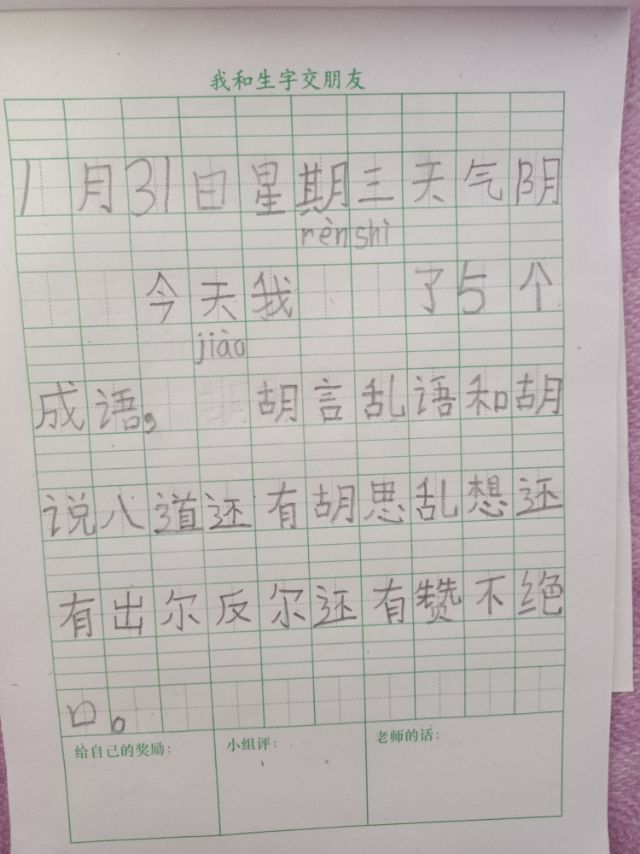 我和生字交朋友
1月31日星期三天气阴
rèn shì
今天我 了5个
jiào
成语, 胡言乱语和胡
说八道还有胡思乱想还
有出尔反尔还有赞不绝
口。
给自己的奖励: 小组评: 老师的话: